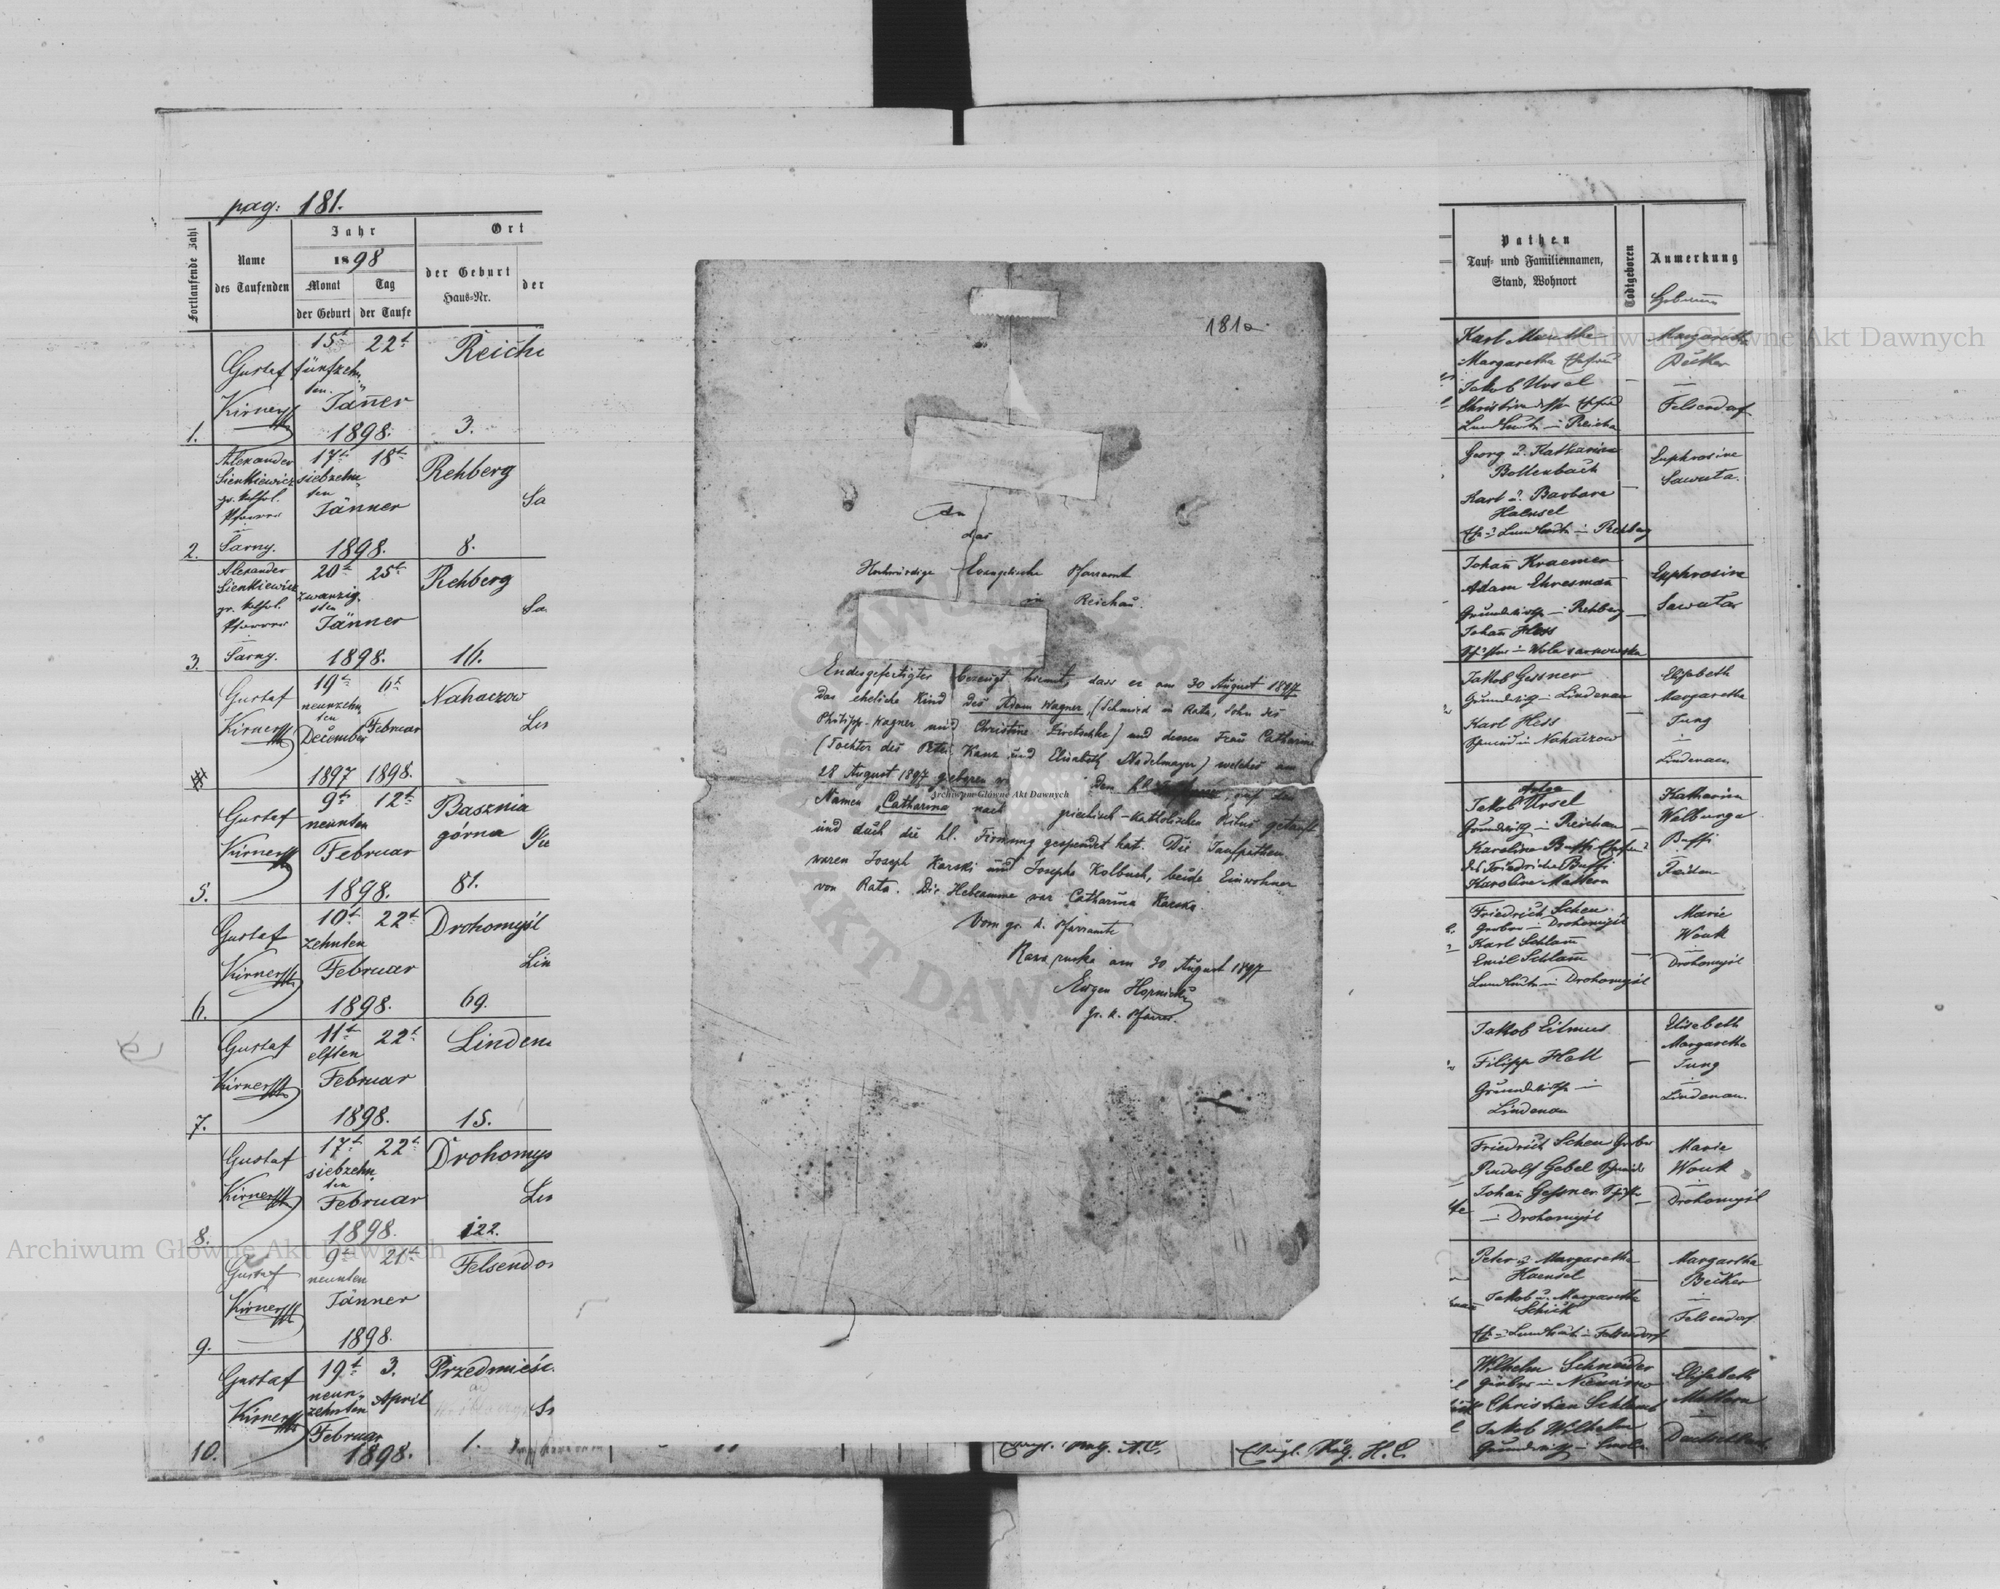 pag: 181.
Fortlaufende Zahl
Name
des Taufenden
Jahr
1898
Monat
der Geburt
Tag
der Taufe
Ort
der Geburt
Haus-Nr.
der
1.
Gustaf
Kirner
15t 22t
fünfzehn
ten
Jänner
1898.
Reich
3.
2.
Alexander
Sienkiewicz
gr. kathol.
Pfarrer
Sarny.
17t 18t
siebzehn
ten
Jänner
1898.
Rehberg
8.
Sa
3.
Alexander
Sienkiewicz
gr. kathol.
Pfarrer
Sarny.
20t 25t
zwanzig
sten
Jänner
1898.
Rehberg
16.
Sa
Gustaf
Kirner
19t 6t
neunzehn
ten
December Februar
1897 1898.
Nahaczow
5.
Gustaf
Kirner
9t 12t
neunten
Februar
1898.
Basznia
górna
81.
6.
Gustaf
Kirner
10t 22t
zehnten
Februar
1898.
Drohomysl
69.
Lin
7.
Gustaf
Kirner
11t 22t
elften
Februar
1898.
Linden
15.
8.
Gustaf
Kirner
17t 22t
siebzehn
ten
Februar
1898.
Drohomys
122.
9.
Gustaf
Kirner
9t 21t
neunten
Jänner
1898.
Felsendor
10.
Gustaf
Kirner
19t 3.
neun
zehnten April
Februar
1898.
Przedmieśc
1.
181a.
An
das
Hochwürdige Evangelische Pfarramt
in Reichau.
Endesgefertigter bezeugt hiemit, dass er am 30 August 1897
das eheliche Kind des Adam Wagner, (Schmied in Rata, Sohn des
Philipp Wagner und Christine Firetschke) und dessen Frau Catharine
(Tochter des Peter Kanz und Elisabeth Stadelmayer) welches am
28 August 1897 geboren den hl. auf den
Namen Catharina nach griechisch-katholischen Ritus getauft
und auch die hl. Firmung gespendet hat. Die Taufpathen
waren Joseph Karski und Josepha Kolbuch, beide Einwohner
von Rata. Die Hebeamme war Catharina Karska.
Vom gr. k. Pfarramte
Rawa ruska am 30 August 1897
Eugen Hornicki
gr. k. Pfarrer.
Archiwum Główne Akt Dawnych
Pathen
Tauf- und Familiennamen,
Stand, Wohnort
Todtgeboren
Anmerkung
Karl Manthe
Margaretha Ehefrau
Jakob Ursel
Christine
Landleute in Reichau
Margaretha
Becker
Felsendorf
Georg u. Katharina
Bollenbach
Karl u. Barbara
Haensel
Rehberg
Euphrosine
Sawuta.
Johann Kraemer
Adam Ehresmann
Rehberg
Johann Hess
Euphrosine
Sawuta
Jakob Gessner
Lindenau
Karl Hess
in Nahaczow
Elisabeth
Margaretha
Jung
Lindenau
Jakob Ursel
in Reichau
Karoline Buffi
des Friedrich Buffi
Karoline Mattern
Katharina
Walburga
Buffi
Friedrich Scheu
Drohomysl
Karl Schlamm
Emil Schlamm
Landleute in Drohomysl
Marie
Wouk
Drohomysl
Jakob Eilmus
Filipp Hall
Grundwirthe in
Lindenau
Elisabeth
Margaretha
Jung
Lindenau.
Friedrich Scheu
Rudolf Gebel
Johann Gessner
in Drohomysl
Marie
Wouk
Drohomysl
Peter u. Margaretha
Haensel
Jakob u. Margaretha
Schick
Felsendorf
Margaretha
Becker
Felsendorf
Wilhelm Schneider
Christian Schlamb
Jakob Wilhelm
Elisabeth
Mattern
Evgl. Relg. A.C.
Evgl. Relg. H.C.
Archiwum Główne Akt Dawnych
Archiwum Główne Akt Dawnych
ARCHIWUM GŁÓWNE AKT DAWNYCH